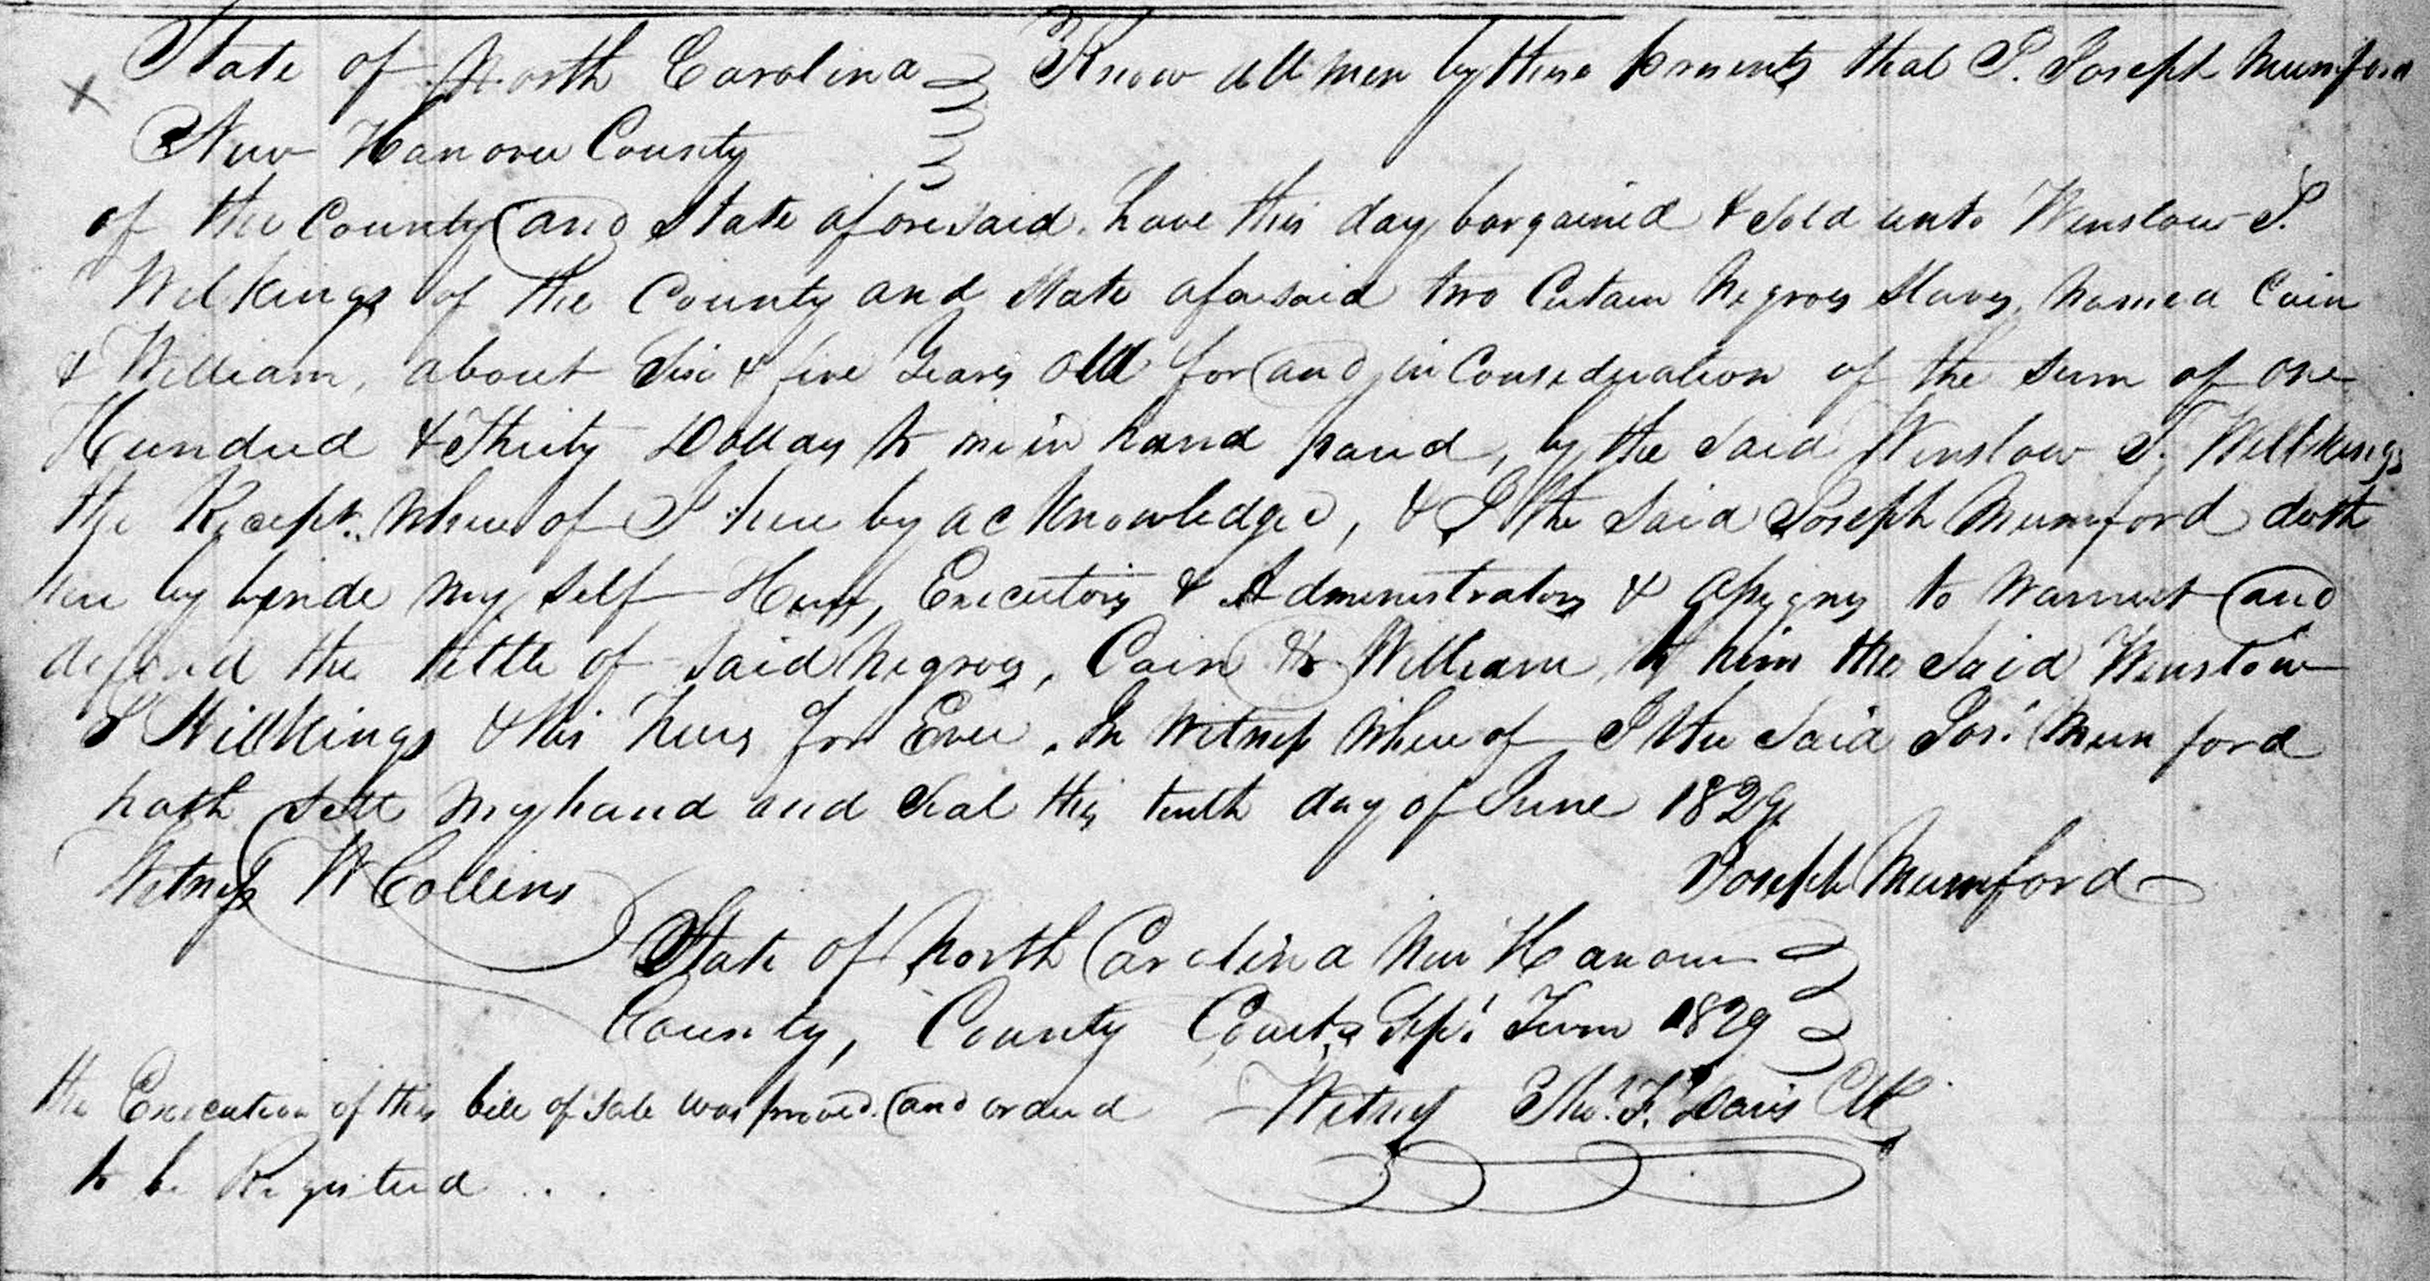 State of North Carolina Know all men by these presents that I. Joseph Mumford
New Hanover County
of the County and State aforesaid. have this day bargained & sold unto Winslow S.
Wilkings of the County and State aforesaid two Certain Negroes Slaves, named Cain
& William, about Six & five Years old for and in Consideration of the Sum of one
Hundred & Thirty Dollars to me in hand paid, by the said Winslow S. Willkings
the Recept. whereof I here by acknowledge, & I the said Joseph Mumford doth
here by binde my self Heirs, Executors & Administrators & assigns to warrent and
defend the tittle of said Negroes, Cain & William to him the said Winslow
S Willkings & his heirs for Ever. In Witness whereof I the said Jos. Mumford
hath sett my hand and seal this tenth day of June 1829
Witness W Collins Joseph Mumford
State of North Carolina New Hanover
County, County Court Sep. Term 1829
the Execution of this bill of sale was proved and ordered Witness Tho. F. Davis Clk
to be Registered ...